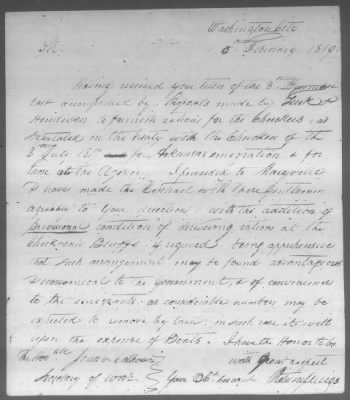 Washington City
5 February 1819
Sir,
Having received your letter of the 8th
last accompanied by Proposals made by
Henderson to furnish rations for the Cherokees as
stipulated in the treaty with the Cherokees of the
8th July 1817 for Arkansas emigration & for
those at the Agency. I proceeded to Maryville
& have made the Contract with those Gentlemen
agreeable to your directions with the addition of
Provisional condition of delivering rations at the
Chickasaw Bluffs if required being apprehensive
that such arrangement may be found advantageous
& economical to the Government, & of convenience
to the emigrants. as considerable numbers may be
expected to remove by land: in such case its will
upon the expense of Boats. I have the Honor to be
the Honble John C Calhoun with great respect
Secretary of War your Obt. Servant Return J Meigs